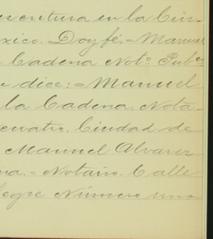 escritura en la Ciu-
xico. Doy fé.- Manuel
Cadena Not.º Pub.co
e dice: - Manuel
la Cadena. Nota-
cuatro. Ciudad de
Manuel Alvarez
na. - Notario. Calle
legre Número uno